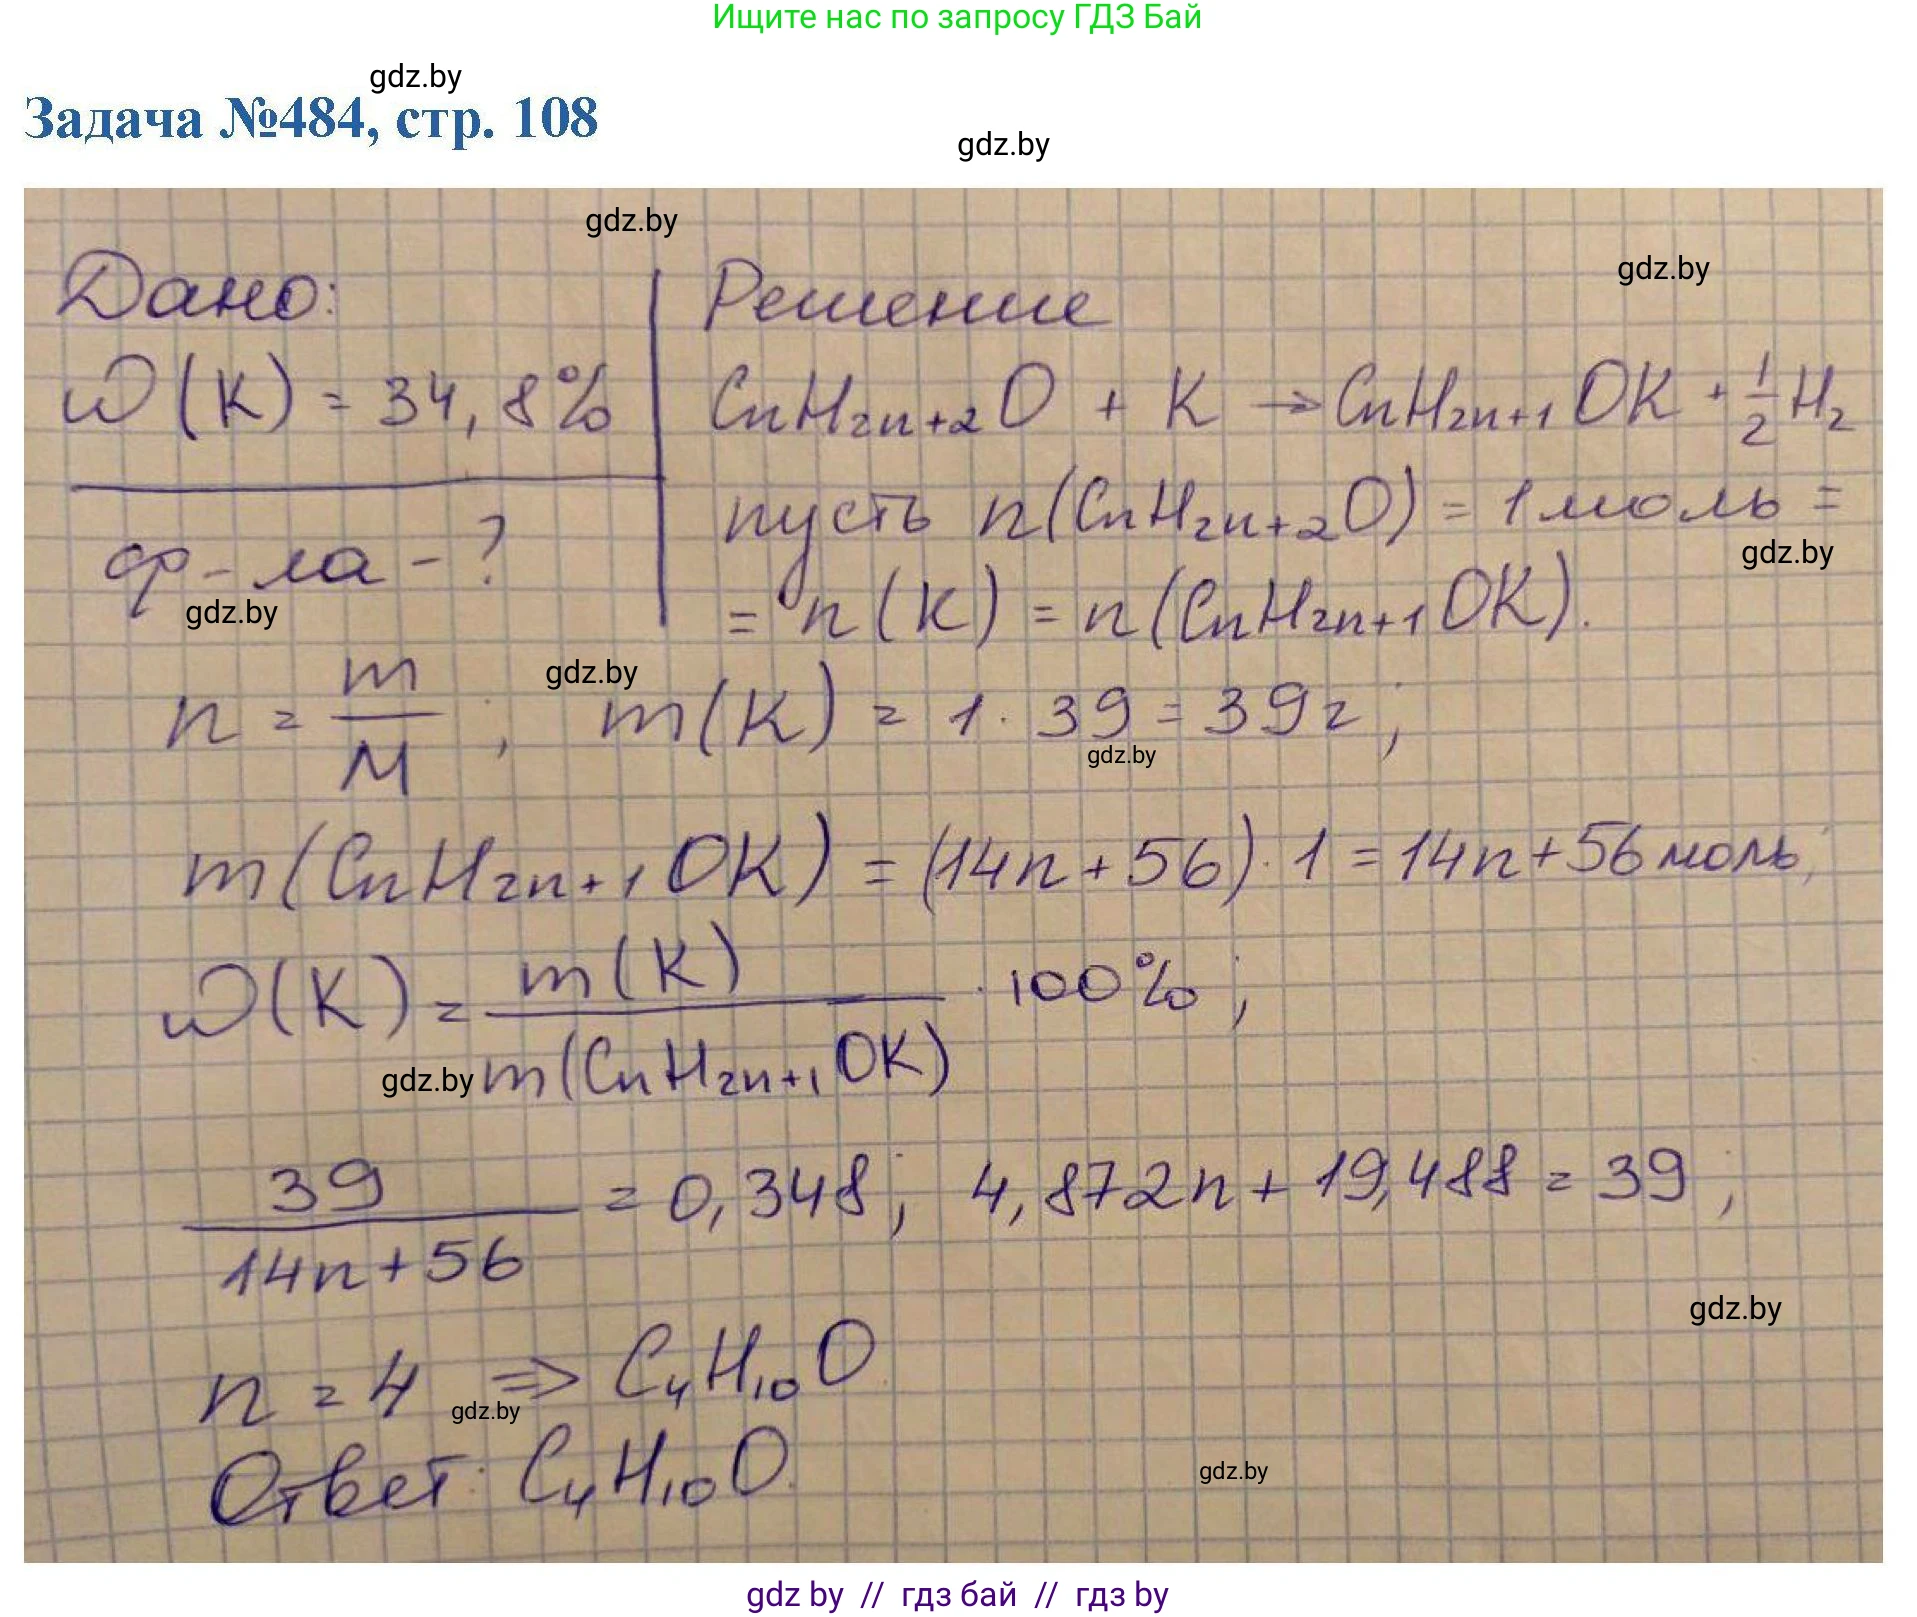 Ищите нас по запросу ГДЗ Бай
gdz.by
Задача №484, стр. 108
gdz.by
gdz.by
Дано:
Решение
gdz.by
ω(K) = 34,8%
CnH2n+2O + K → CnH2n+1OK + 1/2 H2
ф-ла - ?
пусть n(CnH2n+2O) = 1 моль =
gdz.by
gdz.by
= n(K) = n(CnH2n+1OK).
gdz.by
n = m/M ; m(K) = 1 · 39 = 39 г ;
gdz.by
m(CnH2n+1OK) = (14n+56) · 1 = 14n+56 моль;
ω(K) = m(K) / m(CnH2n+1OK) · 100% ;
gdz.by
39 / 14n+56 = 0,348 ; 4,872n + 19,488 = 39 ;
gdz.by
n = 4 => C4H10O
gdz.by
Ответ: C4H10O.
gdz.by
gdz by // гдз бай // гдз by